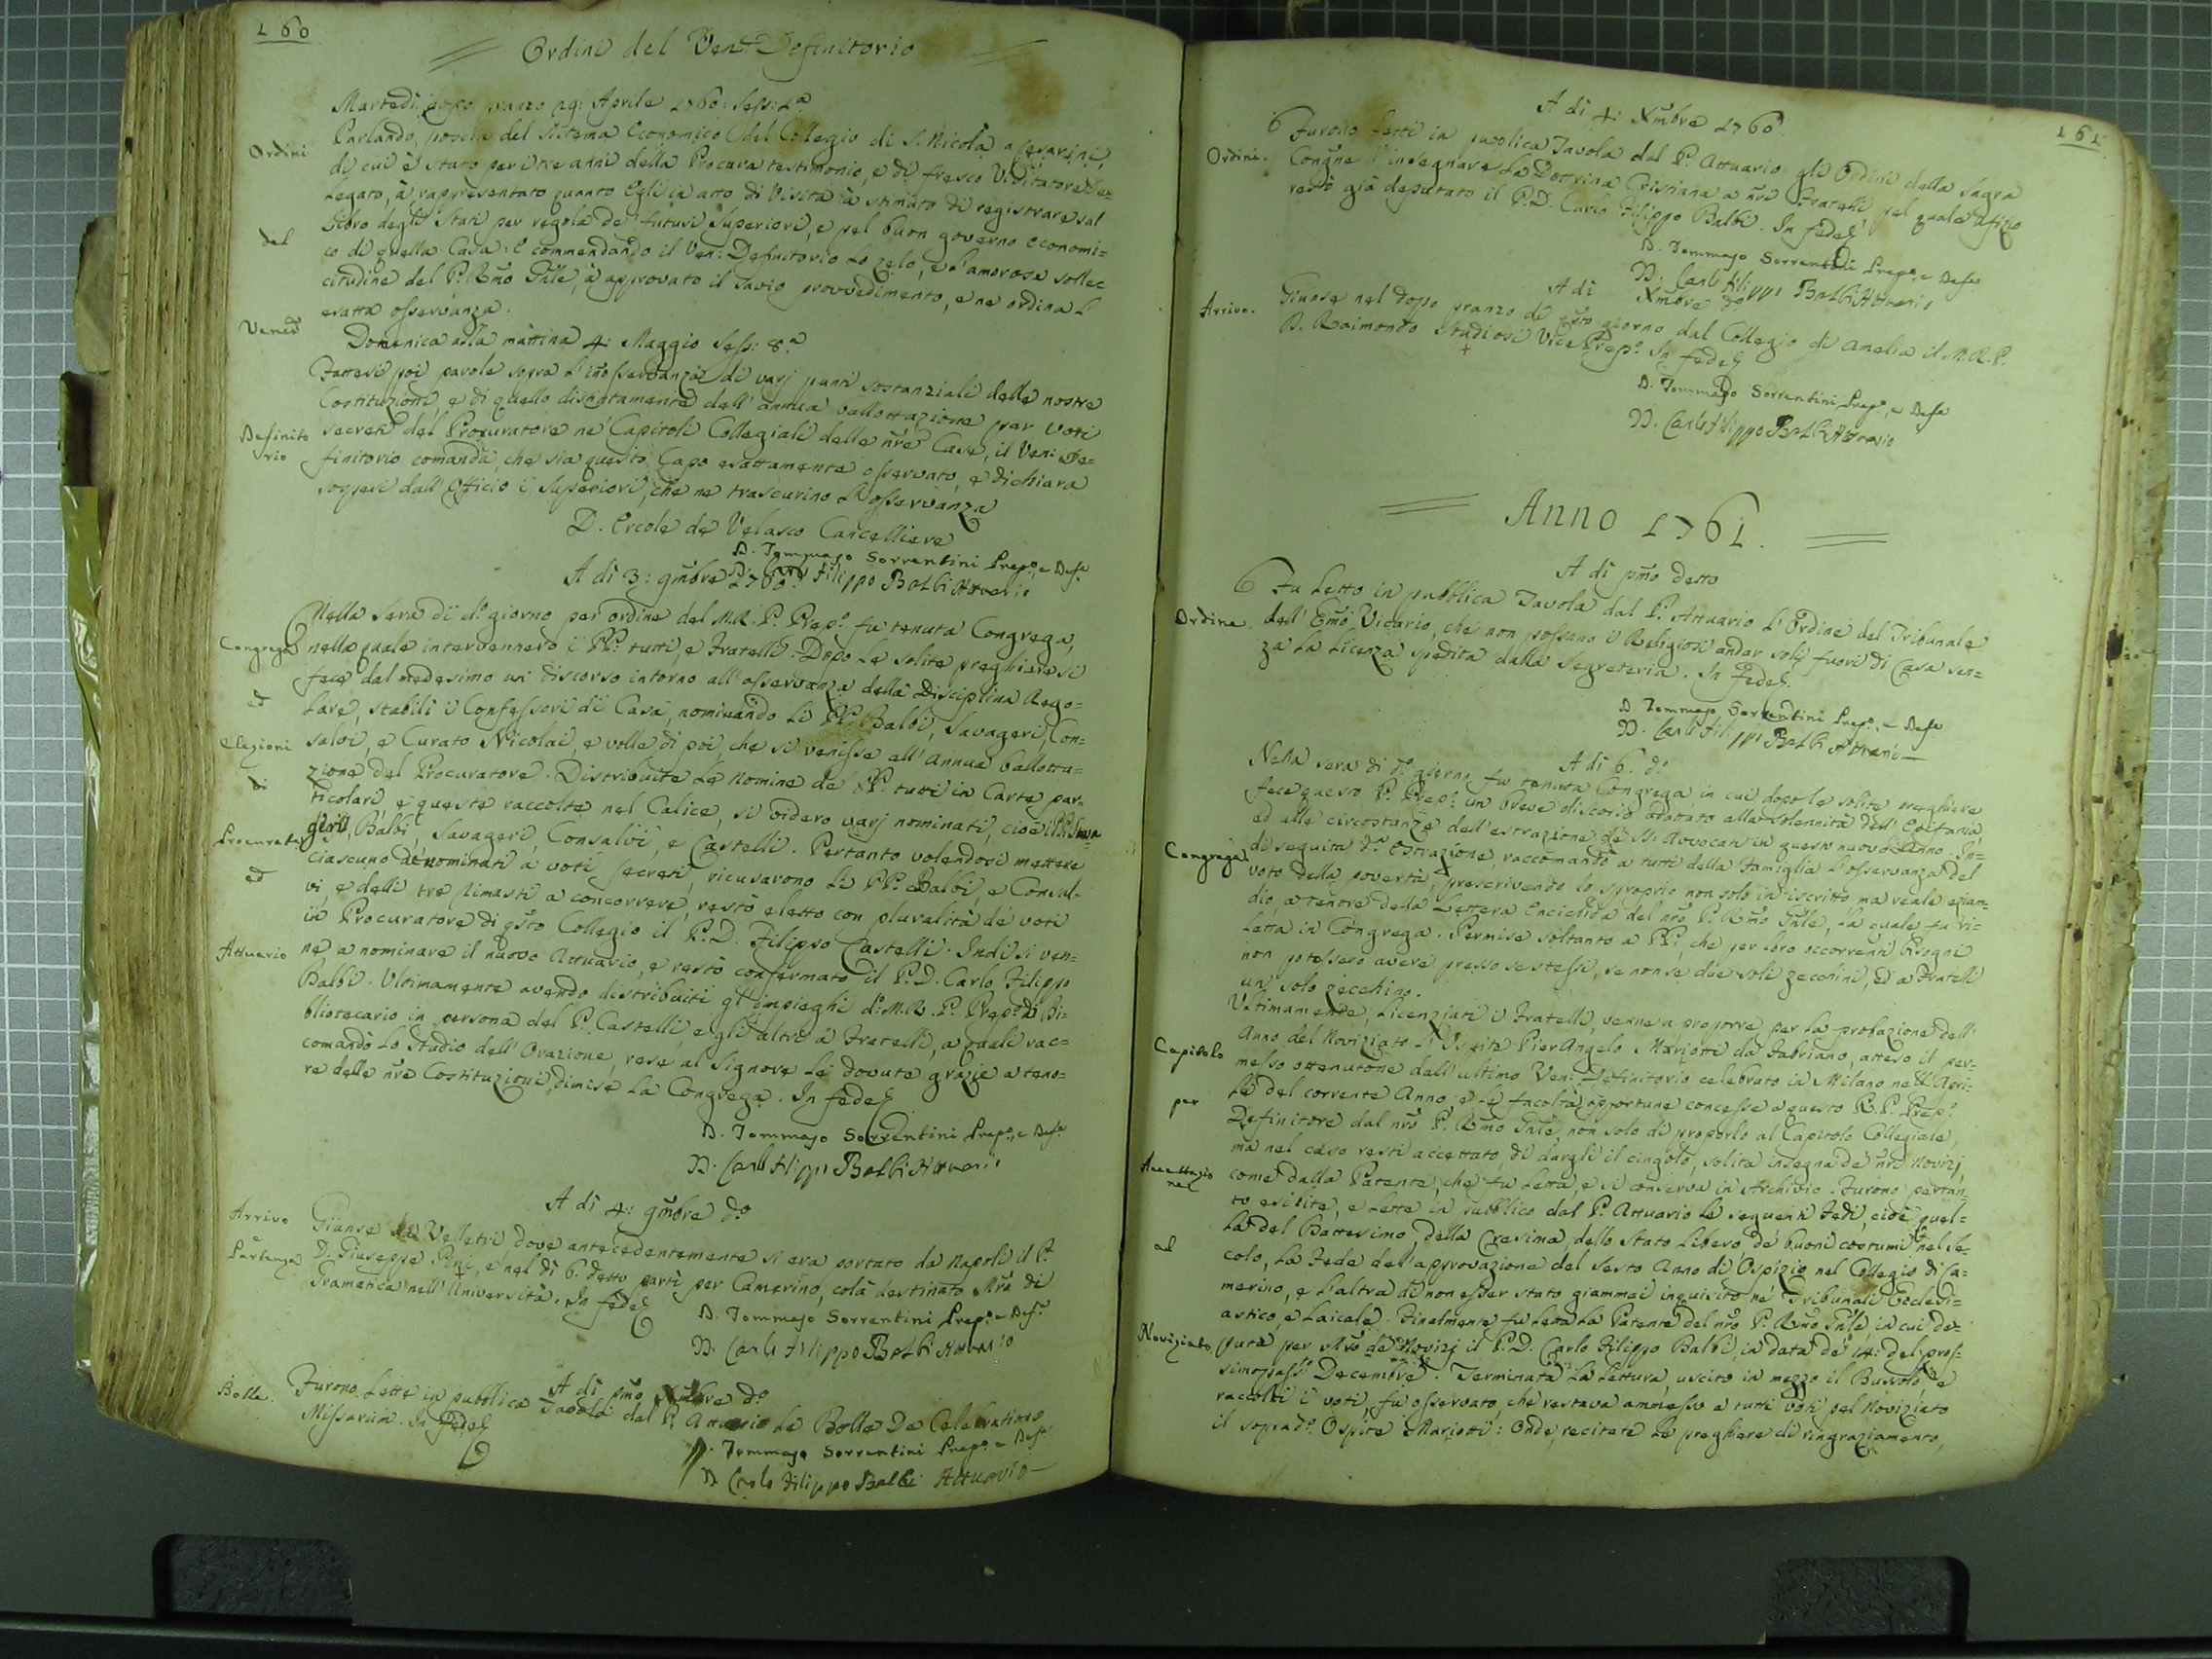 160
Ordini del Ven.e Definitorio
Martedì dopo pranzo 29: Aprile 1760: Sess: 1.a
Ordini
Parlando poscia del sistema Economico del Collegio di S. Nicola a Cesarini,
di cui è stato per i tre anni della Procura testimonio, e di fresco Visitatore De-
legato, à rappresentato quanto Egli in atto di Visita à stimato di registrare sul
Libro degli Stati per regola de' futuri Superiori, e pel buon governo economi-
del
co di quella Casa: E commendando il Ven: Definitorio lo zelo, e l'amorosa sollec
citudine del P. Rmo Gnle, à approvato il savio provvedimento, e ne ordina l'
esatta osservanza.
Vened
Domenica alla mattina 4: Maggio Sess: 8.a
Fattesi poi parole sopra l'inosservanza di varj punti sostanziali delle nostre
Costituzioni e di quello distintamente dell'annua ballottazione per voti
Definito
rio
secreti del Procuratore ne' Capitoli Collegiali delle nre Case, il Ven: De-
finitorio comanda, che sia questo Capo esattamente osservato, e dichiara
sospesi dall'Officio i Superiori, che ne trascurino l'osservanza
D. Ercole de Velasco Cancelliere
D. Tommaso Sorrentini Prep.o, e Def.e
D. Carlo Filippo Balbi Attuario
A dì 3: 9mbre 1760
Congrega
ed
Elezioni
di
Procurator
ed
Attuario
Nella sera di d.o giorno per ordine del M.R. P. Prep.o fu tenuta Congrega,
nella quale intervennero i PP. tutti, e Fratelli. Dopo le solite preghiere si
fece dal medesimo un discorso intorno all'osservanza della Disciplina Rego-
lare, stabilì i Confessori di Casa, nominando li PP. Balbi, Savageri, Con-
salvi, e Curato Nicolai, e volle di poi, che si venisse all'annua ballotta-
zione del Procuratore. Distribuite le nomine de' PP. tutti in Carte par-
ticolari, e queste raccolte nel Calice, si videro varj nominati, cioè
Balbi, Savageri, Consalvi, e Castelli. Pertanto volendosi mettere
ciascuno de' nominati a voti secreti, ricusarono li PP. Balbi, e Consal-
vi, e delli tre rimasti a concorrere, restò eletto con pluralità de' voti
in Procuratore di qsto Collegio il P. D. Filippo Castelli. Indi si ven-
ne a nominare il nuovo Attuario, e restò confermato il P. D. Carlo Filippo
Balbi. Ultimamente avendo distribuiti gl'impieghi d.o M.R. P. Prep.o di Bi-
bliotecario in persona del P. Castelli, e gli altri a' Fratelli, a' quali rac-
comandò lo studio dell'Orazione, rese al Signore le dovute grazie a teno-
re delle nre Costituzioni, dimise la Congrega. In fede
D. Tommaso Sorrentini Prep.o, e Def.e
D. Carlo Filippo Balbi Attuario
A dì 4: 9mbre d.o
Arrivo
Partenza
Giunse da Velletri, dove antecedentemente si era portato da Napoli il P.
D. Giuseppe Pini, e nel dì 6. detto partì per Camerino, colà destinato Mro di
Gramatica nell'Università. In fede
D. Tommaso Sorrentini Prep.o e Def.e
D. Carlo Filippo Balbi Attuario
A dì pmo Xmbre d.o
Bolla.
Furono Lette in pubblica Tavola dal P. Attuario la Bolla De Celebratione
Missarum. In fede
D. Tommaso Sorrentini Prep.o e Def.e
D. Carlo Filippo Balbi Attuario
161
A dì 4: Xmbre 1760
Ordini.
Furono letti in pubblica Tavola dal P. Attuario gli Ordini della Sagra
Congne d'insegnare la Dottrina Cristiana a' nri Fratelli, pel quale Ufizio
restò già deputato il P. D. Carlo Filippo Balbi. In fede
D. Tommaso Sorrentini Prep.o, e Def.e
D. Carlo Filippo Balbi Attuario
A dì Xmbre d.o
Arrivo.
Giunse nel dopo pranzo di qsto giorno dal Collegio di Amelia il M.R. P.
D. Raimondo Studiosi Vice Prep.o In fede
D. Tommaso Sorrentini Prep.o, e Def.e
D. Carlo Filippo Balbi Attuario
Anno 1761.
A dì pmo detto
Ordine.
Fu Letto in pubblica Tavola dal P. Attuario l'Ordine del Tribunale
dell'Emo Vicario, che non possano i Religiosi andar soli fuori di Casa sen-
za la Licenza spedita dalla Segreteria. In fede
D. Tommaso Sorrentini Prep.o, e Def.e
D. Carlo Filippo Balbi Attuario
A dì 6. d.o
Congrega
Nella sera di d.o giorno fu tenuta Congrega, in cui dopo le solite preghiere
fece questo P. Prep.o un breve discorso adattato alla solennità dell'Epifania,
ed alle circostanze dell'estrazione de' SS. Avvocati in questo nuovo Anno. In-
di seguita d.a Estrazione, raccomandò a tutti della Famiglia l'osservanza del
voto della povertà, prescrivendo lo sproprio non solo in iscritto ma reale ezian-
dio, a tenore della Lettera Enciclica del nro P. Rmo Gnle, la quale fu ri-
letta in Congrega. Permise soltanto a' PP., che per loro occorrenti bisogni
non potessero avere presso se stessi, se non se due soli zecchini, ed a' Fratelli
un solo zecchino.
Capitolo
per
Accettazio
ne
al
Noviziato
Ultimamente, licenziati i Fratelli, venne a proporre per la probazione dell'
Anno del Noviziato l'Ospite Pier Angelo Mariotti da Fabriano, atteso il per-
messo ottenutone dall'ultimo Ven: Definitorio celebrato in Milano nell'Apri-
le del corrente Anno e le facoltà opportune concesse a questo R. P. Prep.o
Definitore dal nro P. Rmo Gnle, non solo di proporlo al Capitolo Collegiale,
ma nel caso resti accettato, di dargli il cingolo, solita insegna de' nri Novizj,
come dalla Patente, che fu letta, e si conserva in Archivio. Furono pertan-
to esibite, e lette in pubblico dal P. Attuario le seguenti Fedi, cioè quel-
la del Battesimo, della Cresima, dello Stato Libero, de' buoni costumi nel Se-
colo, la Fede dell'approvazione del sesto Anno di Ospizio nel Collegio di Ca-
merino, e l'altra di non esser stato giammai inquisito ne' Tribunali Ecclesi-
astico, e Laicale. Finalmente fu letta la Patente del nro P. Rmo Gnle, in cui de-
puta per Mro de' Novizj il P. D. Carlo Filippo Balbi, in data de' 14: del pros-
simo pass.o Decembre. Terminata la lettura, uscito in mezzo il Bussolo, e
raccolti i voti, fu osservato, che restava ammesso a tutti voti pel Noviziato
il soprad.o Ospite Mariotti: Onde recitate le preghiere di ringraziamento,